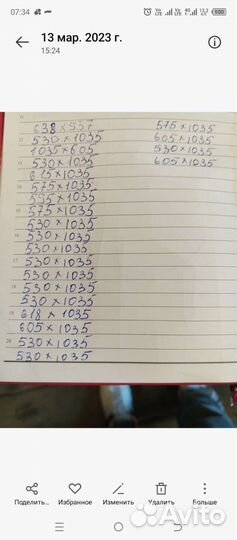 07:34
100
13 мар. 2023 г.
15:24
638 × 957
530 × 1035
1035 × 605
530 × 1035
615 × 1035
575 × 1035
595 × 1035
575 × 1035
530 × 1035
530 × 1035
530 × 1035
530 × 1035
530 × 1035
530 × 1035
530 × 1035
618 × 1035
605 × 1035
530 × 1035
530 × 1035
575 × 1035
605 × 1035
530 × 1035
605 × 1035
Поделить...
Избранное
Изменить
Удалить
Больше
Avito